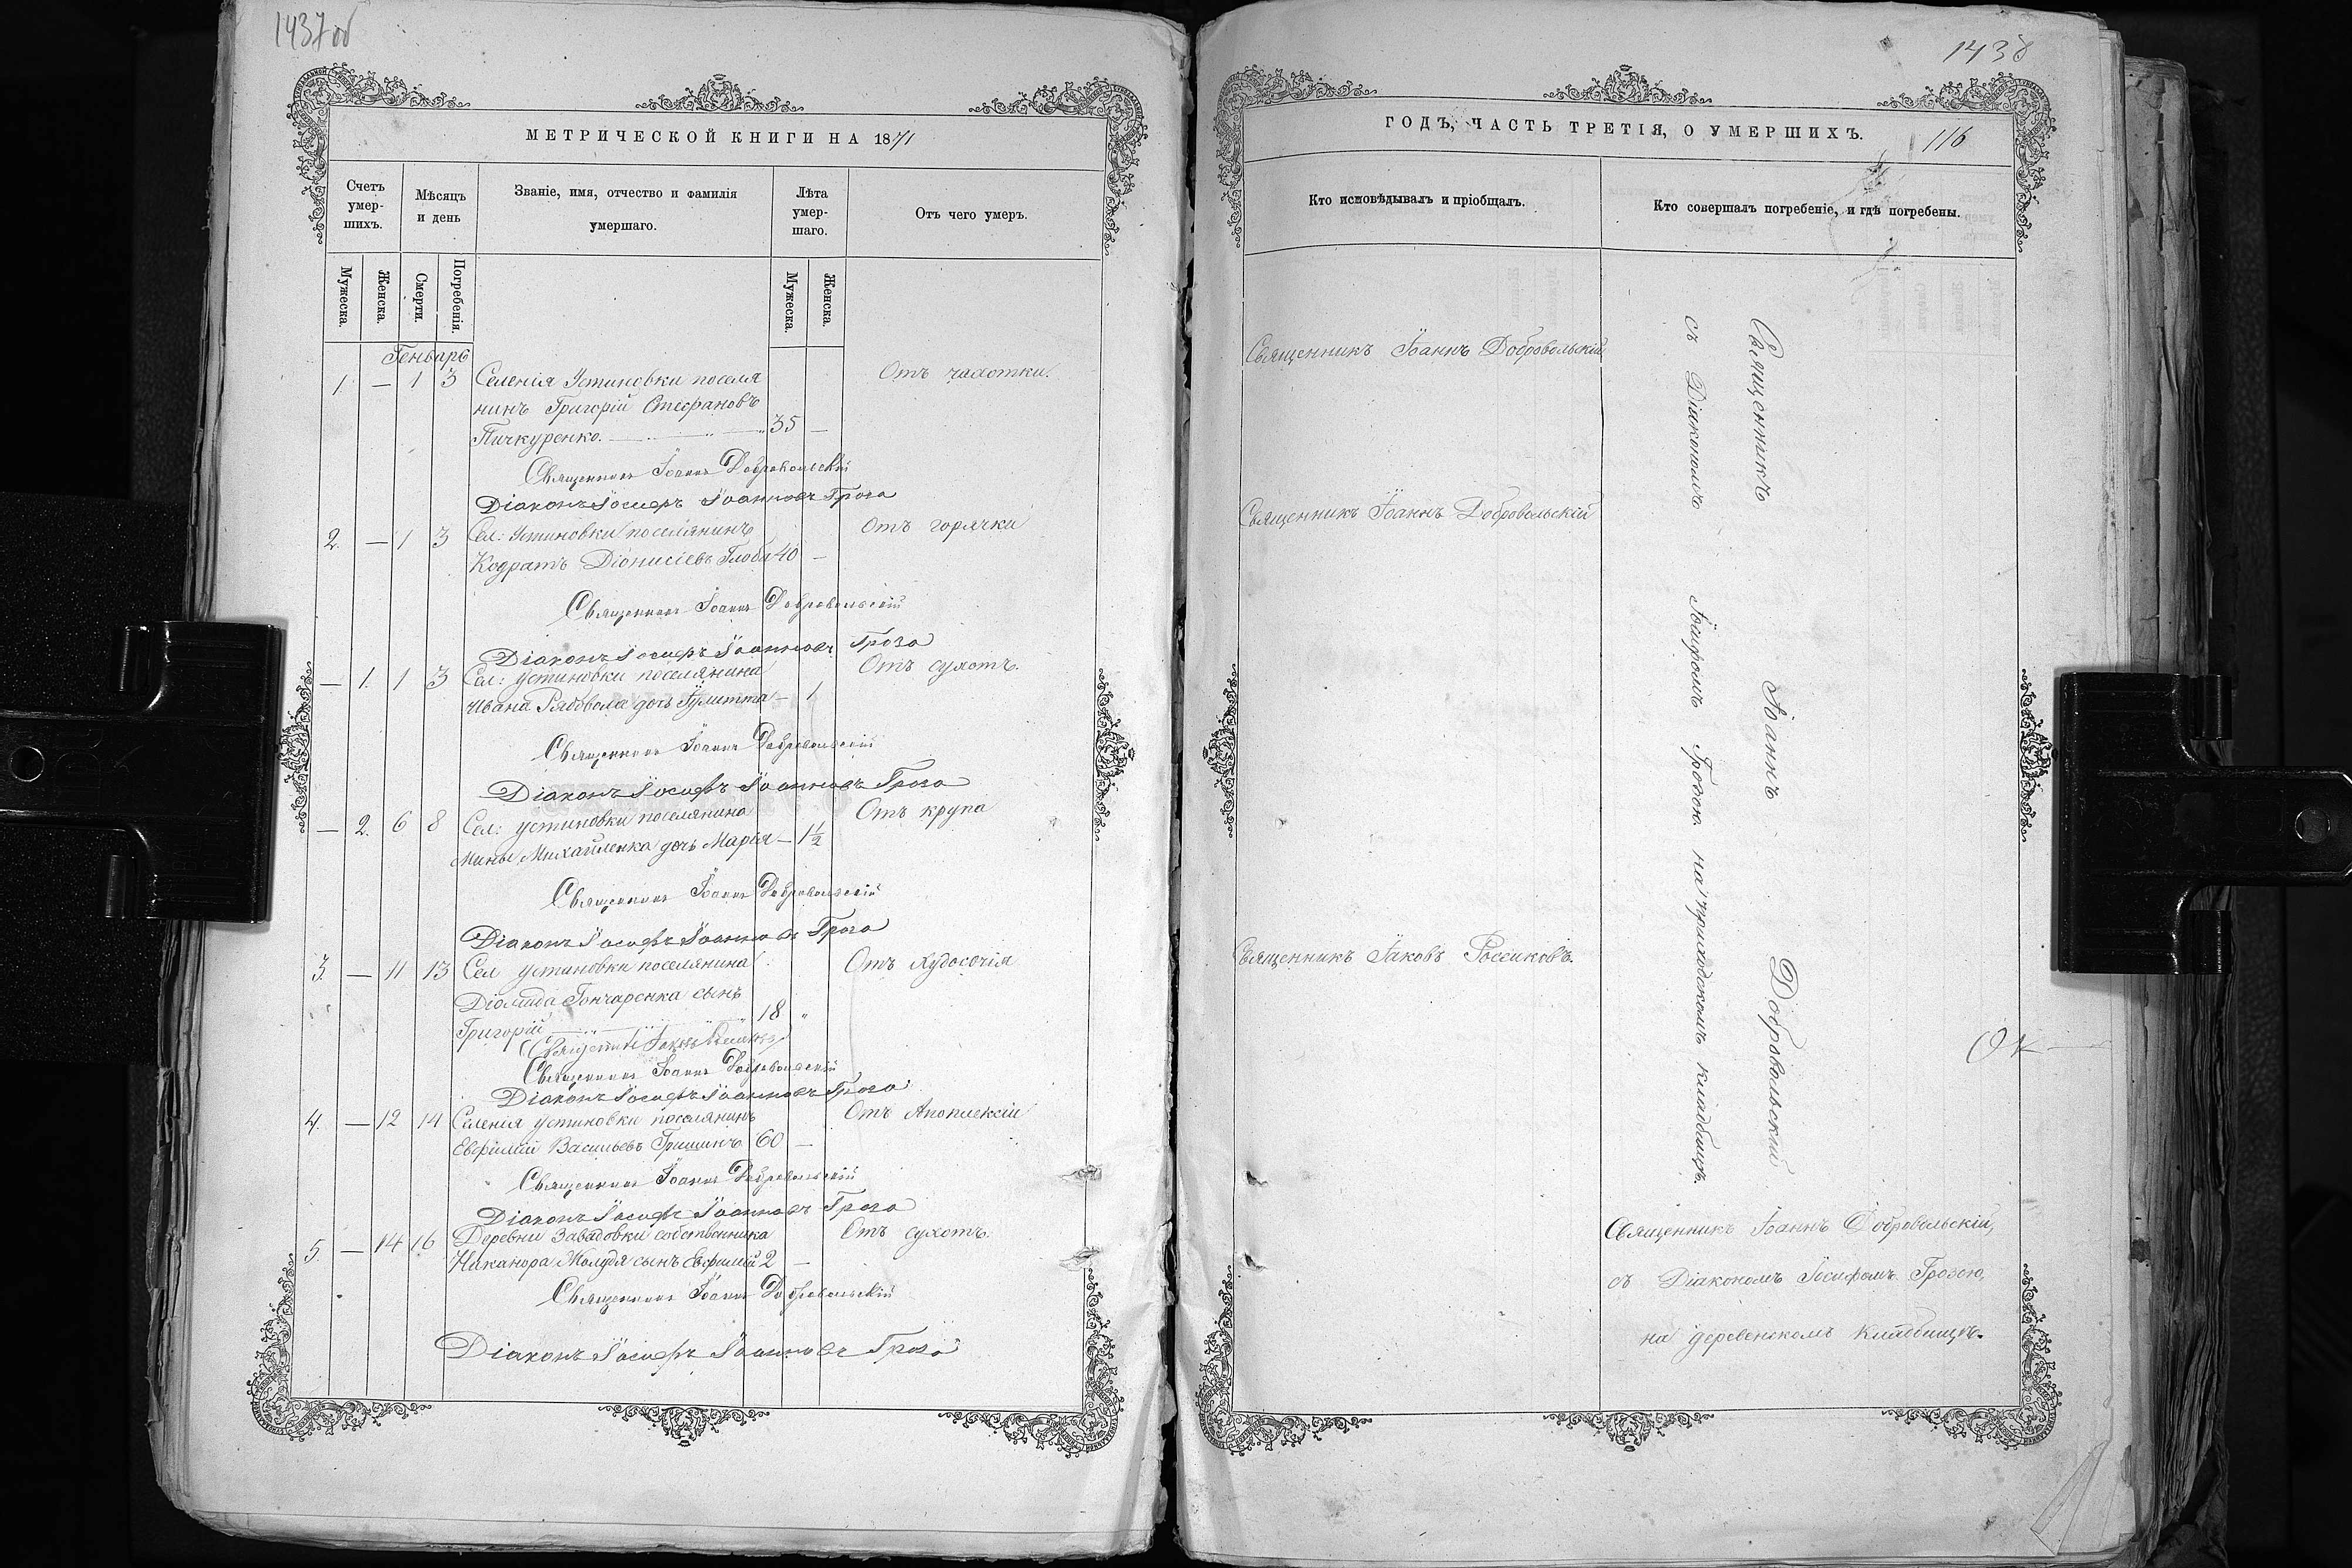 1437об
МЕТРИЧЕСКОЙ КНИГИ НА 1871
Счетъ умер-
шихъ.
Мѣсяцъ
и день
Званіе, имя, отчество и фамилія
умершаго.
Лѣта
умер-
шаго.
Отъ чего умеръ.
Мужеска.
Женска.
Смерти.
Погребенія.
Мужеска.
Женска.
Генварь
1. — 1 3 Селенія Устиновки поселя Отъ чахотки.
нинъ Григорій Стефановъ
Пичкуренко. 35 —
Священникъ Іоаннъ Добровольскій
Діаконъ Іосифъ Іоанновъ Гроза
2. — 1 3 Сел: Устиновки поселянинъ Отъ горячки
Кодратъ Діонисіевъ Глоба 40 —
Священникъ Іоаннъ Добровольскій
Діаконъ Іосифъ Іоанновъ Гроза
— 1. 1 3 Сел: Устиновки поселянина Отъ сухотъ.
Ивана Рябовола дочь Іулитта — 1
Священникъ Іоаннъ Добровольскій
Діаконъ Іосифъ Іоанновъ Гроза
— 2. 6 8 Сел: Устиновки поселянина Отъ крупа
Мины Михайленка дочь Марія — 1½
Священникъ Іоаннъ Добровольскій
Діаконъ Іосифъ Іоанновъ Гроза
3. — 11 13 Сел Устиновки поселянина Отъ худосочія
Діомида Гончаренка сынъ
Григорій 18 "
Священникъ Іаковъ Россиковъ
Священникъ Іоаннъ Добровольскій
Діаконъ Іосифъ Іоанновъ Гроза
4. — 12 14 Селенія Устиновки поселянинъ Отъ Апоплексіи
Евфимій Васильевъ Гришинъ 60 —
Священникъ Іоаннъ Добровольскій
Діаконъ Іосифъ Іоанновъ Гроза
5. — 14 16 Деревни Завадовки собственника Отъ сухотъ.
Никанора Желудя сынъ Евфимій 2 —
Священникъ Іоаннъ Добровольскій
Діаконъ Іосифъ Іоанновъ Гроза
1438
ГОДЪ, ЧАСТЬ ТРЕТІЯ, О УМЕРШИХЪ.
116
Кто исповѣдывалъ и пріобщалъ.
Кто совершалъ погребеніе, и гдѣ погребены.
Священникъ Іоаннъ Добровольскій
Священникъ Іоаннъ Добровольскій
Священникъ Іаковъ Россиковъ.
Священникъ Іоаннъ Добровольскій
съ Діакономъ Іосифомъ Грозою на приходскомъ кладбищѣ.
Священникъ Іоаннъ Добровольскій,
съ Діакономъ Іосифомъ Грозою,
на деревенскомъ кладбищѣ.